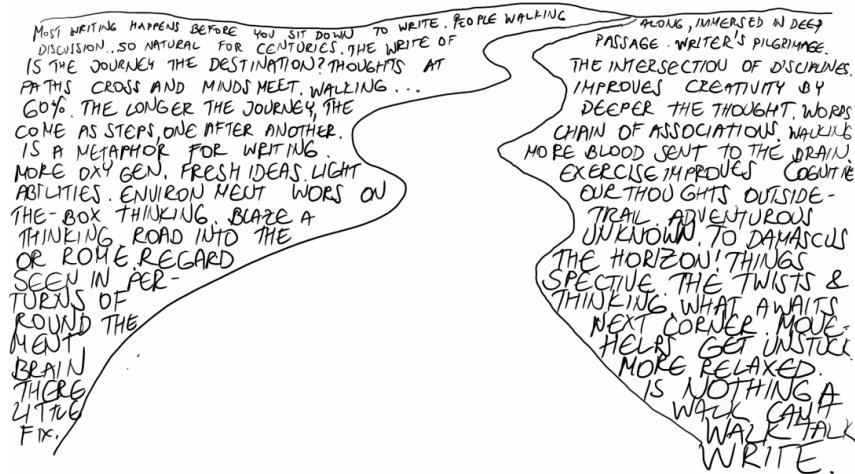 MOST WRITING HAPPENS BEFORE YOU SIT DOWN TO WRITE. PEOPLE WALKING ALONG, IMMERSED IN DEEP
DISCUSSION...SO NATURAL FOR CENTURIES. THE WRITE OF PASSAGE. WRITER'S PILGRIMAGE.
IS THE JOURNEY THE DESTINATION? THOUGHTS AT THE INTERSECTION OF DISCIPLINES.
PATHS CROSS AND MINDS MEET. WALKING... IMPROVES CREATIVITY BY
60%. THE LONGER THE JOURNEY, THE DEEPER THE THOUGHT. WORDS
COME AS STEPS, ONE AFTER ANOTHER. CHAIN OF ASSOCIATIONS. WALKING
IS A METAPHOR FOR WRITING. MORE BLOOD SENT TO THE BRAIN.
MORE OXYGEN. FRESH IDEAS. LIGHT EXERCISE IMPROVES COGNITIVE
ABILITIES. ENVIRONMENT WORS ON OUR THOUGHTS OUTSIDE-
THE-BOX THINKING. BLAZE A TRAIL. ADVENTUROUS
THINKING. ROAD INTO THE UNKNOWN. TO DAMASCUS
OR ROME. REGARD THE HORIZON! THINGS
SEEN IN PER- SPECTIVE. THE TWISTS &
TURNS OF THINKING. WHAT AWAITS
ROUND THE NEXT CORNER. MOVE-
MENT HELPS GET UNSTUCK.
BRAIN MORE RELAXED.
THERE IS NOTHING A
LITTLE WALK CAN'T
FIX. WALK TALK
WRITE.